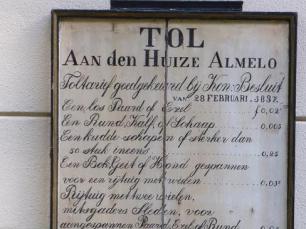 TOL
AAN DEN HUIZE ALMELO
Toltarief goedgekeurd bij Kon: Besluit
VAN 28 FEBRUARI 1837.
Een los Paard of Ezel f 0,02⁵
Een Rund, Kalf of Schaap 0,005
Een kudde schapen of sterker dan
50 stuk ineens 0,25
Een Bok, Geit of Hond gespannen
voor een rijtuig met wielen 0,03
Rijtuig met twee wielen,
mitsgaders Sleden, voor
aangespannen Paard Ezel of Rund